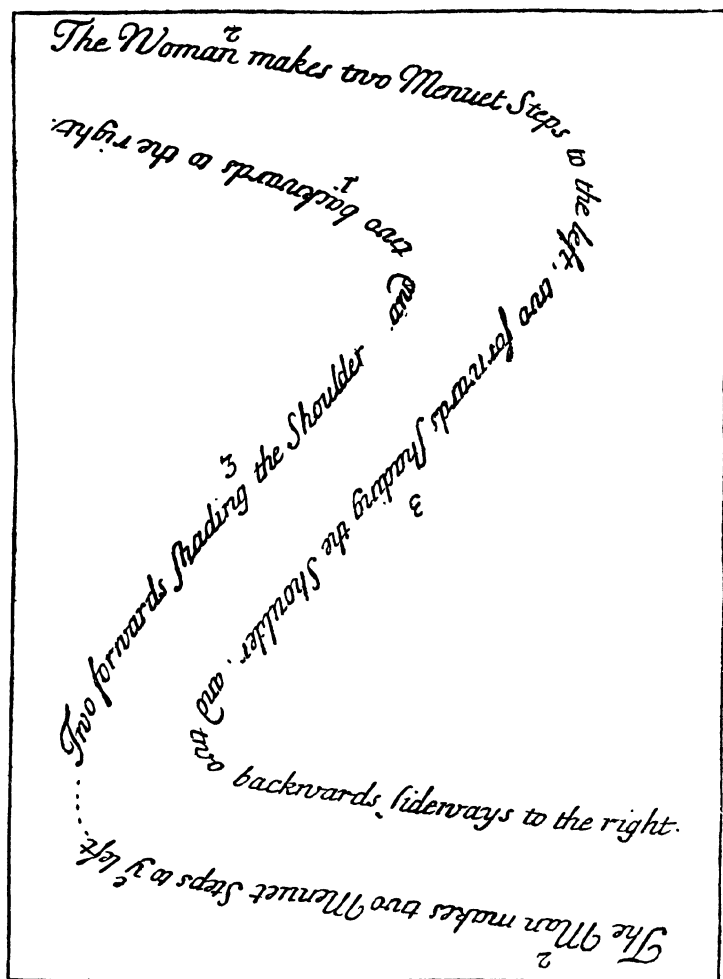 The Woman makes two Menuet Steps to the left, two forwards ſhading the Shoulder, and two backwards ſideways to the right.
2
3
The Man makes two Menuet Steps to yᵉ left.
2
Two forwards ſhading the Shoulder
3
and two backwards to the right.
1